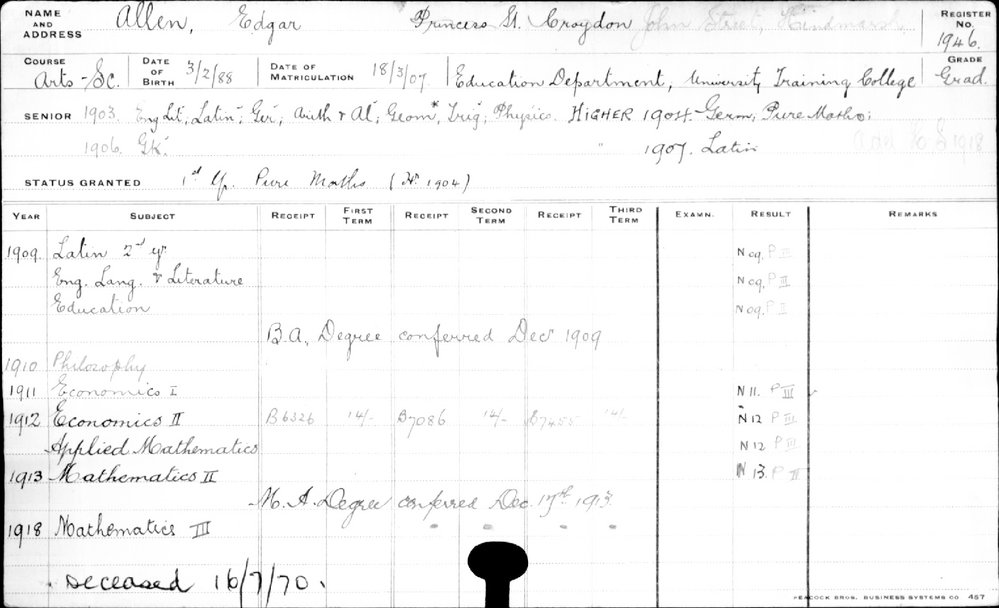 NAME AND ADDRESS Allen, Edgar Princess St. Croydon John Street, Hindmarsh, REGISTER No. 1946
COURSE Arts - Sc. DATE OF BIRTH 3/2/88 DATE OF MATRICULATION 18/3/07 Education Department, University Training College GRADE Grad.
SENIOR 1903. Eng Lit, Latin, Ger, Arith & Al, Geom*, Trig, Physics. HIGHER 1904 - Germ, Pure Maths;
1906. Gk. " 1907. Latin 1918
STATUS GRANTED 1st Yr. Pure Maths (H. 1904)
YEAR SUBJECT RECEIPT FIRST TERM RECEIPT SECOND TERM RECEIPT THIRD TERM EXAMN. RESULT REMARKS
1909 Latin 2nd yr. N 09, P III
Eng. Lang. & Literature N 09, P III
Education N 09, P II
B.A. Degree conferred Decr 1909
1910 Philosophy
1911 Economics I N 11. P III
1912 Economics II B6326 14/- B7086 14/- 14/- N 12 P III
Applied Mathematics N 12 P III
1913 Mathematics II N 13. P II
M. A. Degree conferred Dec. 1913.
1918 Mathematics III
Deceased 16/7/70.
PEACOCK BROS. BUSINESS SYSTEMS CO 457